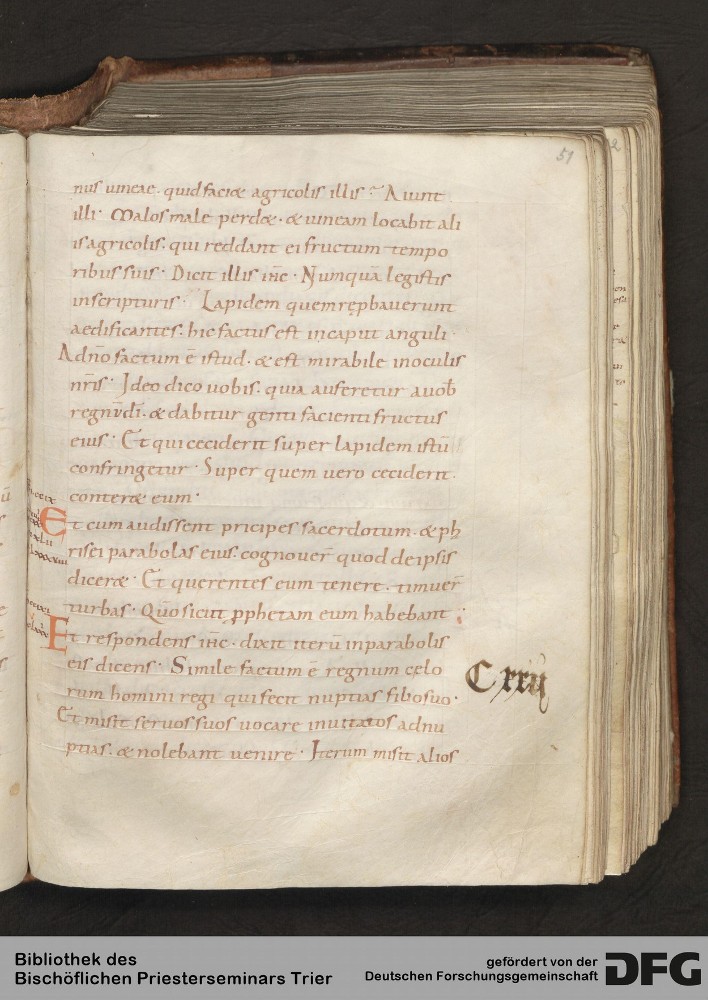 51
nus uineae · quid faci& agricolis illis · Aiunt
illi · Malos male perd& · & uineam locabit ali
is agricolis · qui reddant ei fructum tempo
ribus suis · Dicit illis ihc · Numquā legistis
in scripturis · Lapidem quem rępbauerunt
aedificantes · hic factus est in caput anguli ·
A dnō factum ē istud · & est mirabile in oculis
nr̄is · Ideo dico uobis · quia auferetur a uob̄
regnū dī · & dabitur genti facienti fructus
eius · Et qui ceciderit super lapidem istū
confringetur · Super quem uero ceciderit ·
conter& eum ·
Et cum audissent pricipes sacerdotum · & pha
risei parabolas eius · cognouer̄ quod de ipsis
dicer& · Et querentes eum tenere · timuer̄
turbas · Qūo sicut pphetam eum habebant
Et respondens ihc · dixit iterū in parabolis
eis dicens · Simile factum ē regnum cęlo
rum homini regi qui fecit nuptias filio suo ·
Et misit seruos suos uocare inuitatos ad nu
ptias · & nolebant uenire · Iterum misit alios
Cxxij
Bibliothek des
Bischöflichen Priesterseminars Trier
gefördert von der
Deutschen Forschungsgemeinschaft
DFG